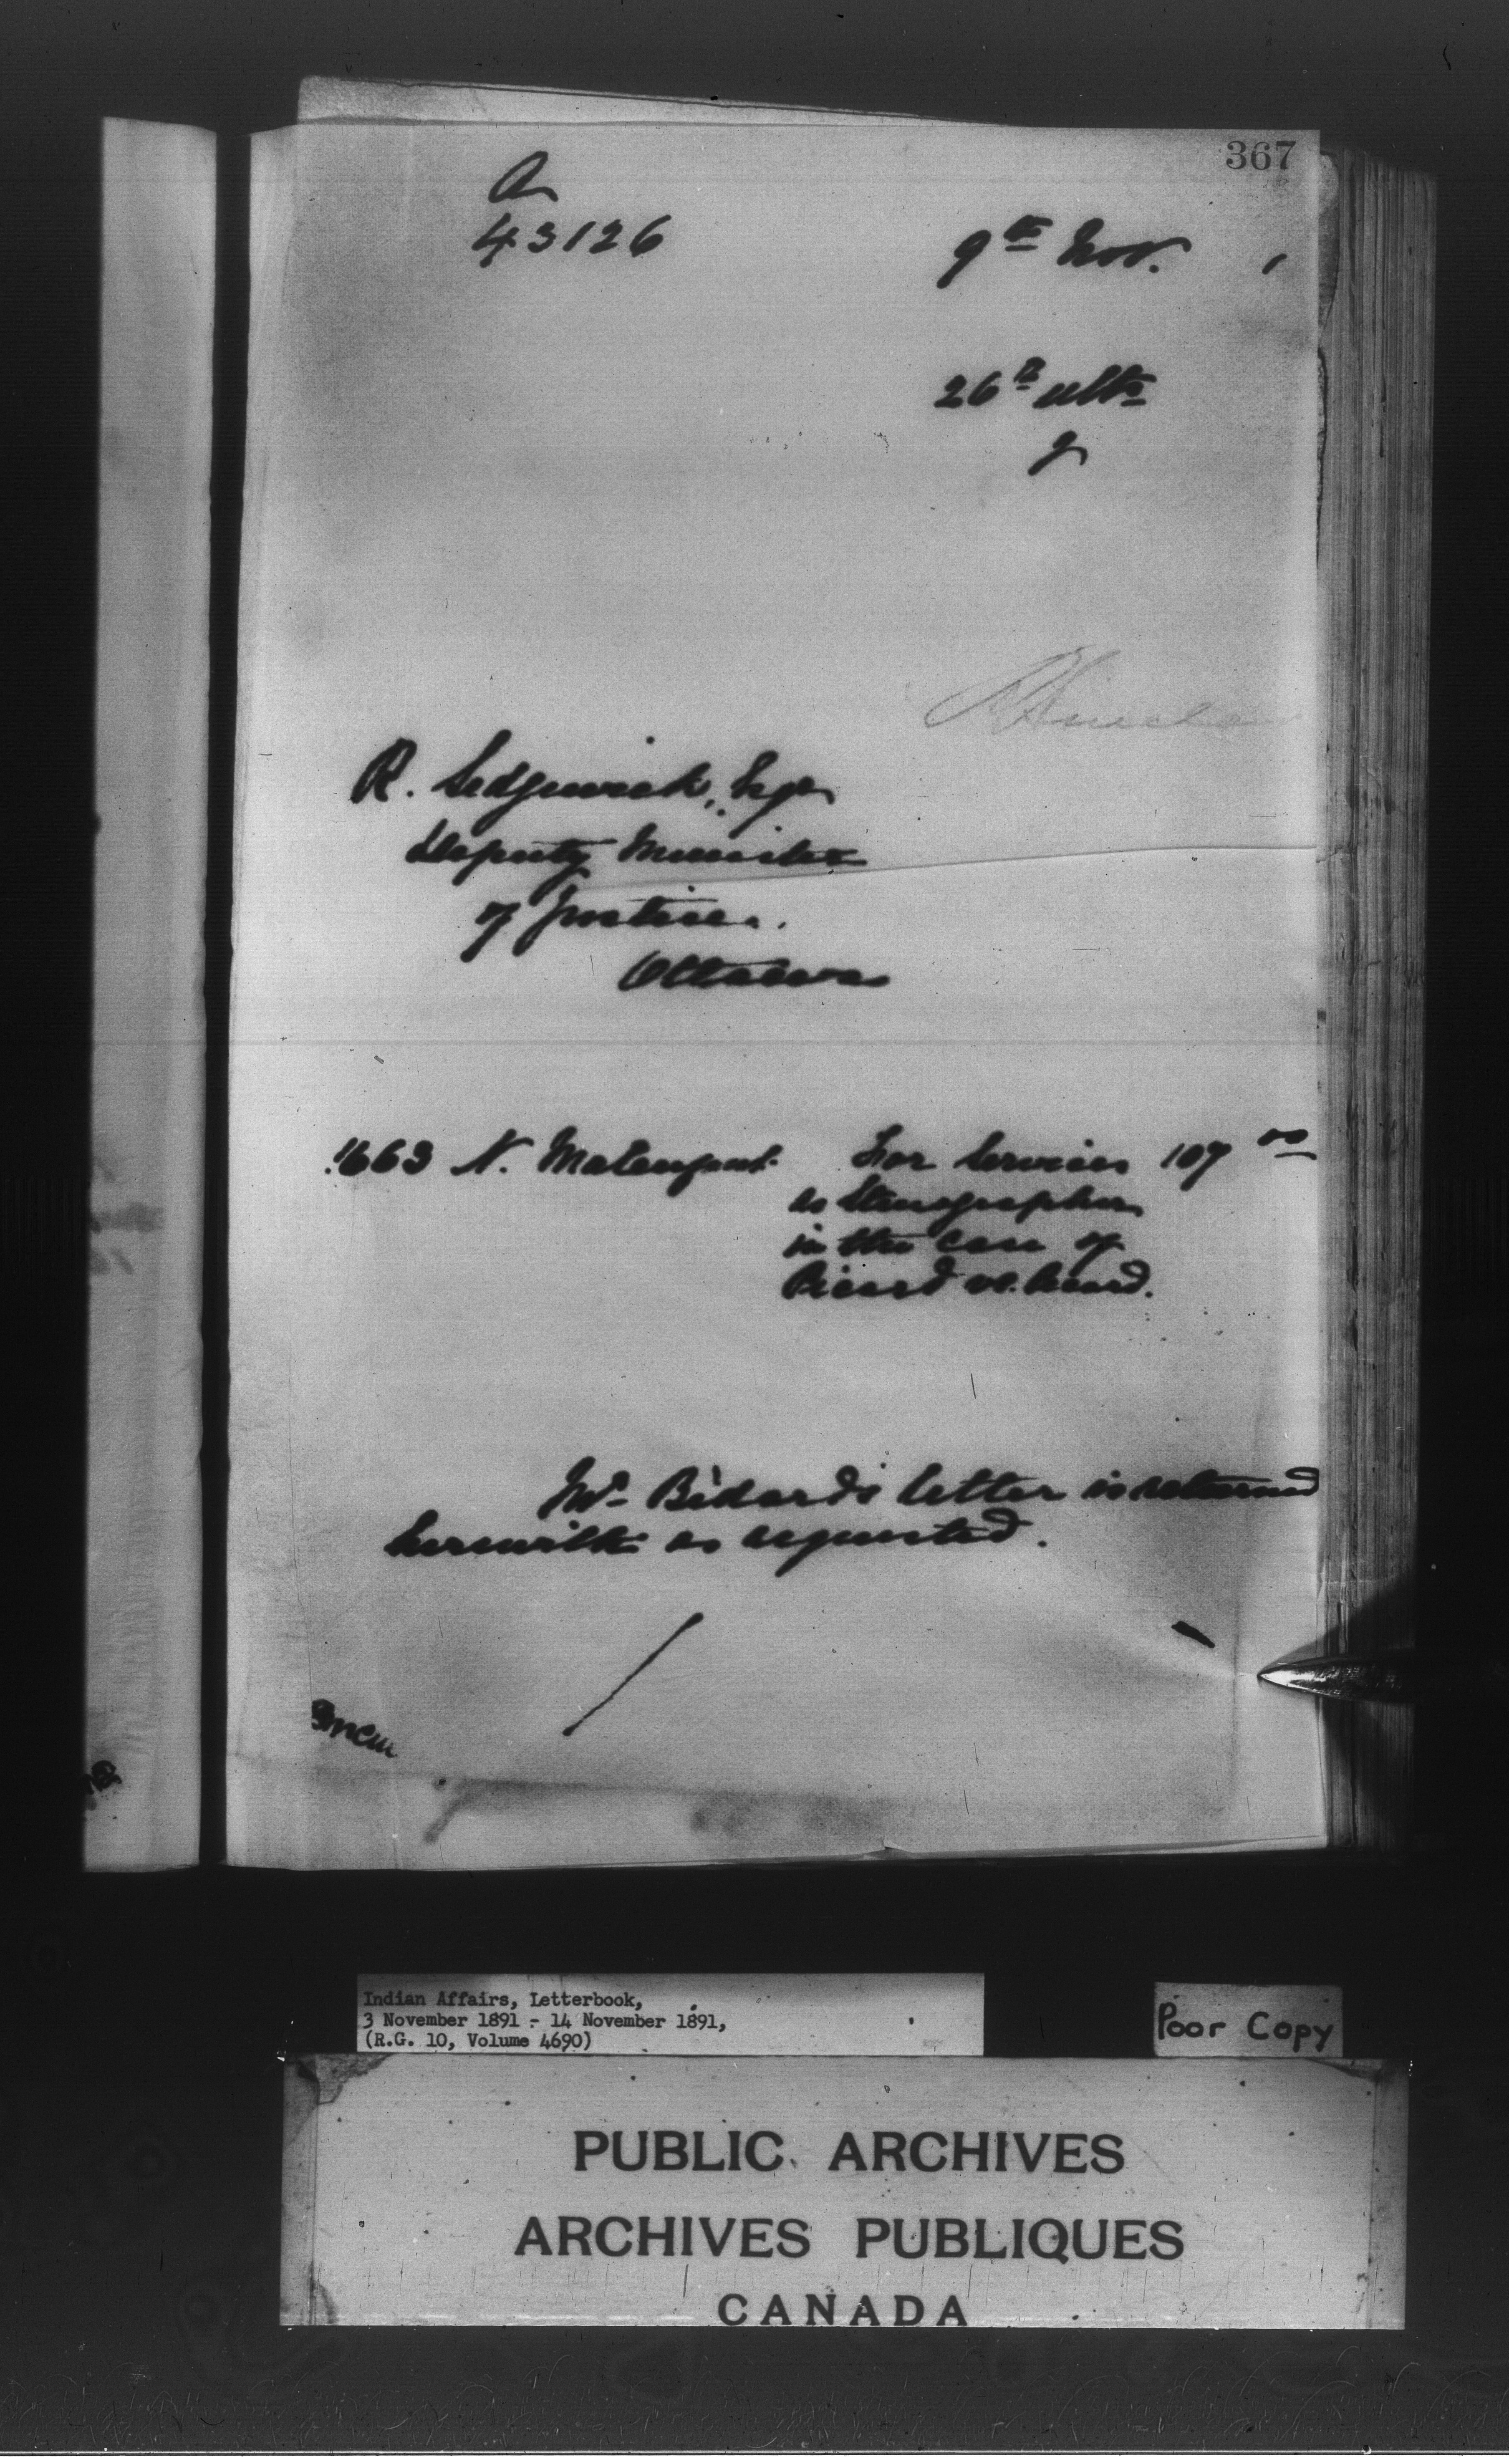 367
A
43126
9th Nov. 1
26th ulto
R. Sedgewick, Esqr
Deputy Minister
of Justice.
Ottawa
1663 N. Malenfant. For Services 107 00
as Stenographer
in the case of
Picard vs. Picard.
Mr. Bédard's letter is returned
herewith as requested.
Indian Affairs, Letterbook,
3 November 1891 - 14 November 1891,
(R.G. 10, Volume 4690)
Poor Copy
PUBLIC ARCHIVES
ARCHIVES PUBLIQUES
CANADA